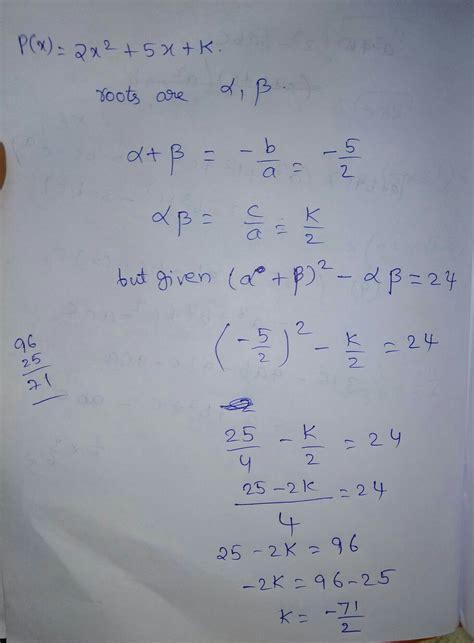 P(x) = 2x² + 5x + k.
roots are α, β.
α + β = -b/a = -5/2
αβ = c/a = k/2
but given (α + β)² - αβ = 24
(-5/2)² - k/2 = 24
96
25
71
25/4 - k/2 = 24
(25 - 2k)/4 = 24
25 - 2k = 96
-2k = 96 - 25
k = -71/2